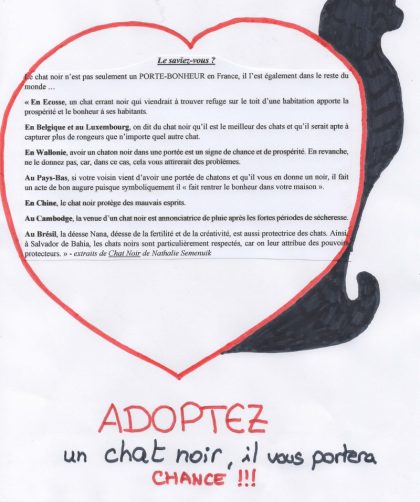 Le saviez-vous ?
Le chat noir n'est pas seulement un PORTE-BONHEUR en France, il l'est également dans le reste du
monde …
« En Ecosse, un chat errant noir qui viendrait à trouver refuge sur le toit d'une habitation apporte la
prospérité et le bonheur à ses habitants.
En Belgique et au Luxembourg, on dit du chat noir qu'il est le meilleur des chats et qu'il serait apte à
capturer plus de rongeurs que n'importe quel autre chat.
En Wallonie, avoir un chaton noir dans une portée est un signe de chance et de prospérité. En revanche,
ne le donnez pas, car, dans ce cas, cela vous attirerait des problèmes.
Au Pays-Bas, si votre voisin vient d'avoir une portée de chatons et qu'il vous en donne un noir, il fait
un acte de bon augure puisque symboliquement il « fait rentrer le bonheur dans votre maison ».
En Chine, le chat noir protège des mauvais esprits.
Au Cambodge, la venue d'un chat noir est annonciatrice de pluie après les fortes périodes de sécheresse.
Au Brésil, la déesse Nana, déesse de la fertilité et de la créativité, est aussi protectrice des chats. Ainsi,
à Salvador de Bahia, les chats noirs sont particulièrement respectés, car on leur attribue des pouvoirs
protecteurs. » - extraits de Chat Noir de Nathalie Semenuik
ADOPTEZ
un chat noir, il vous portera
CHANCE !!!